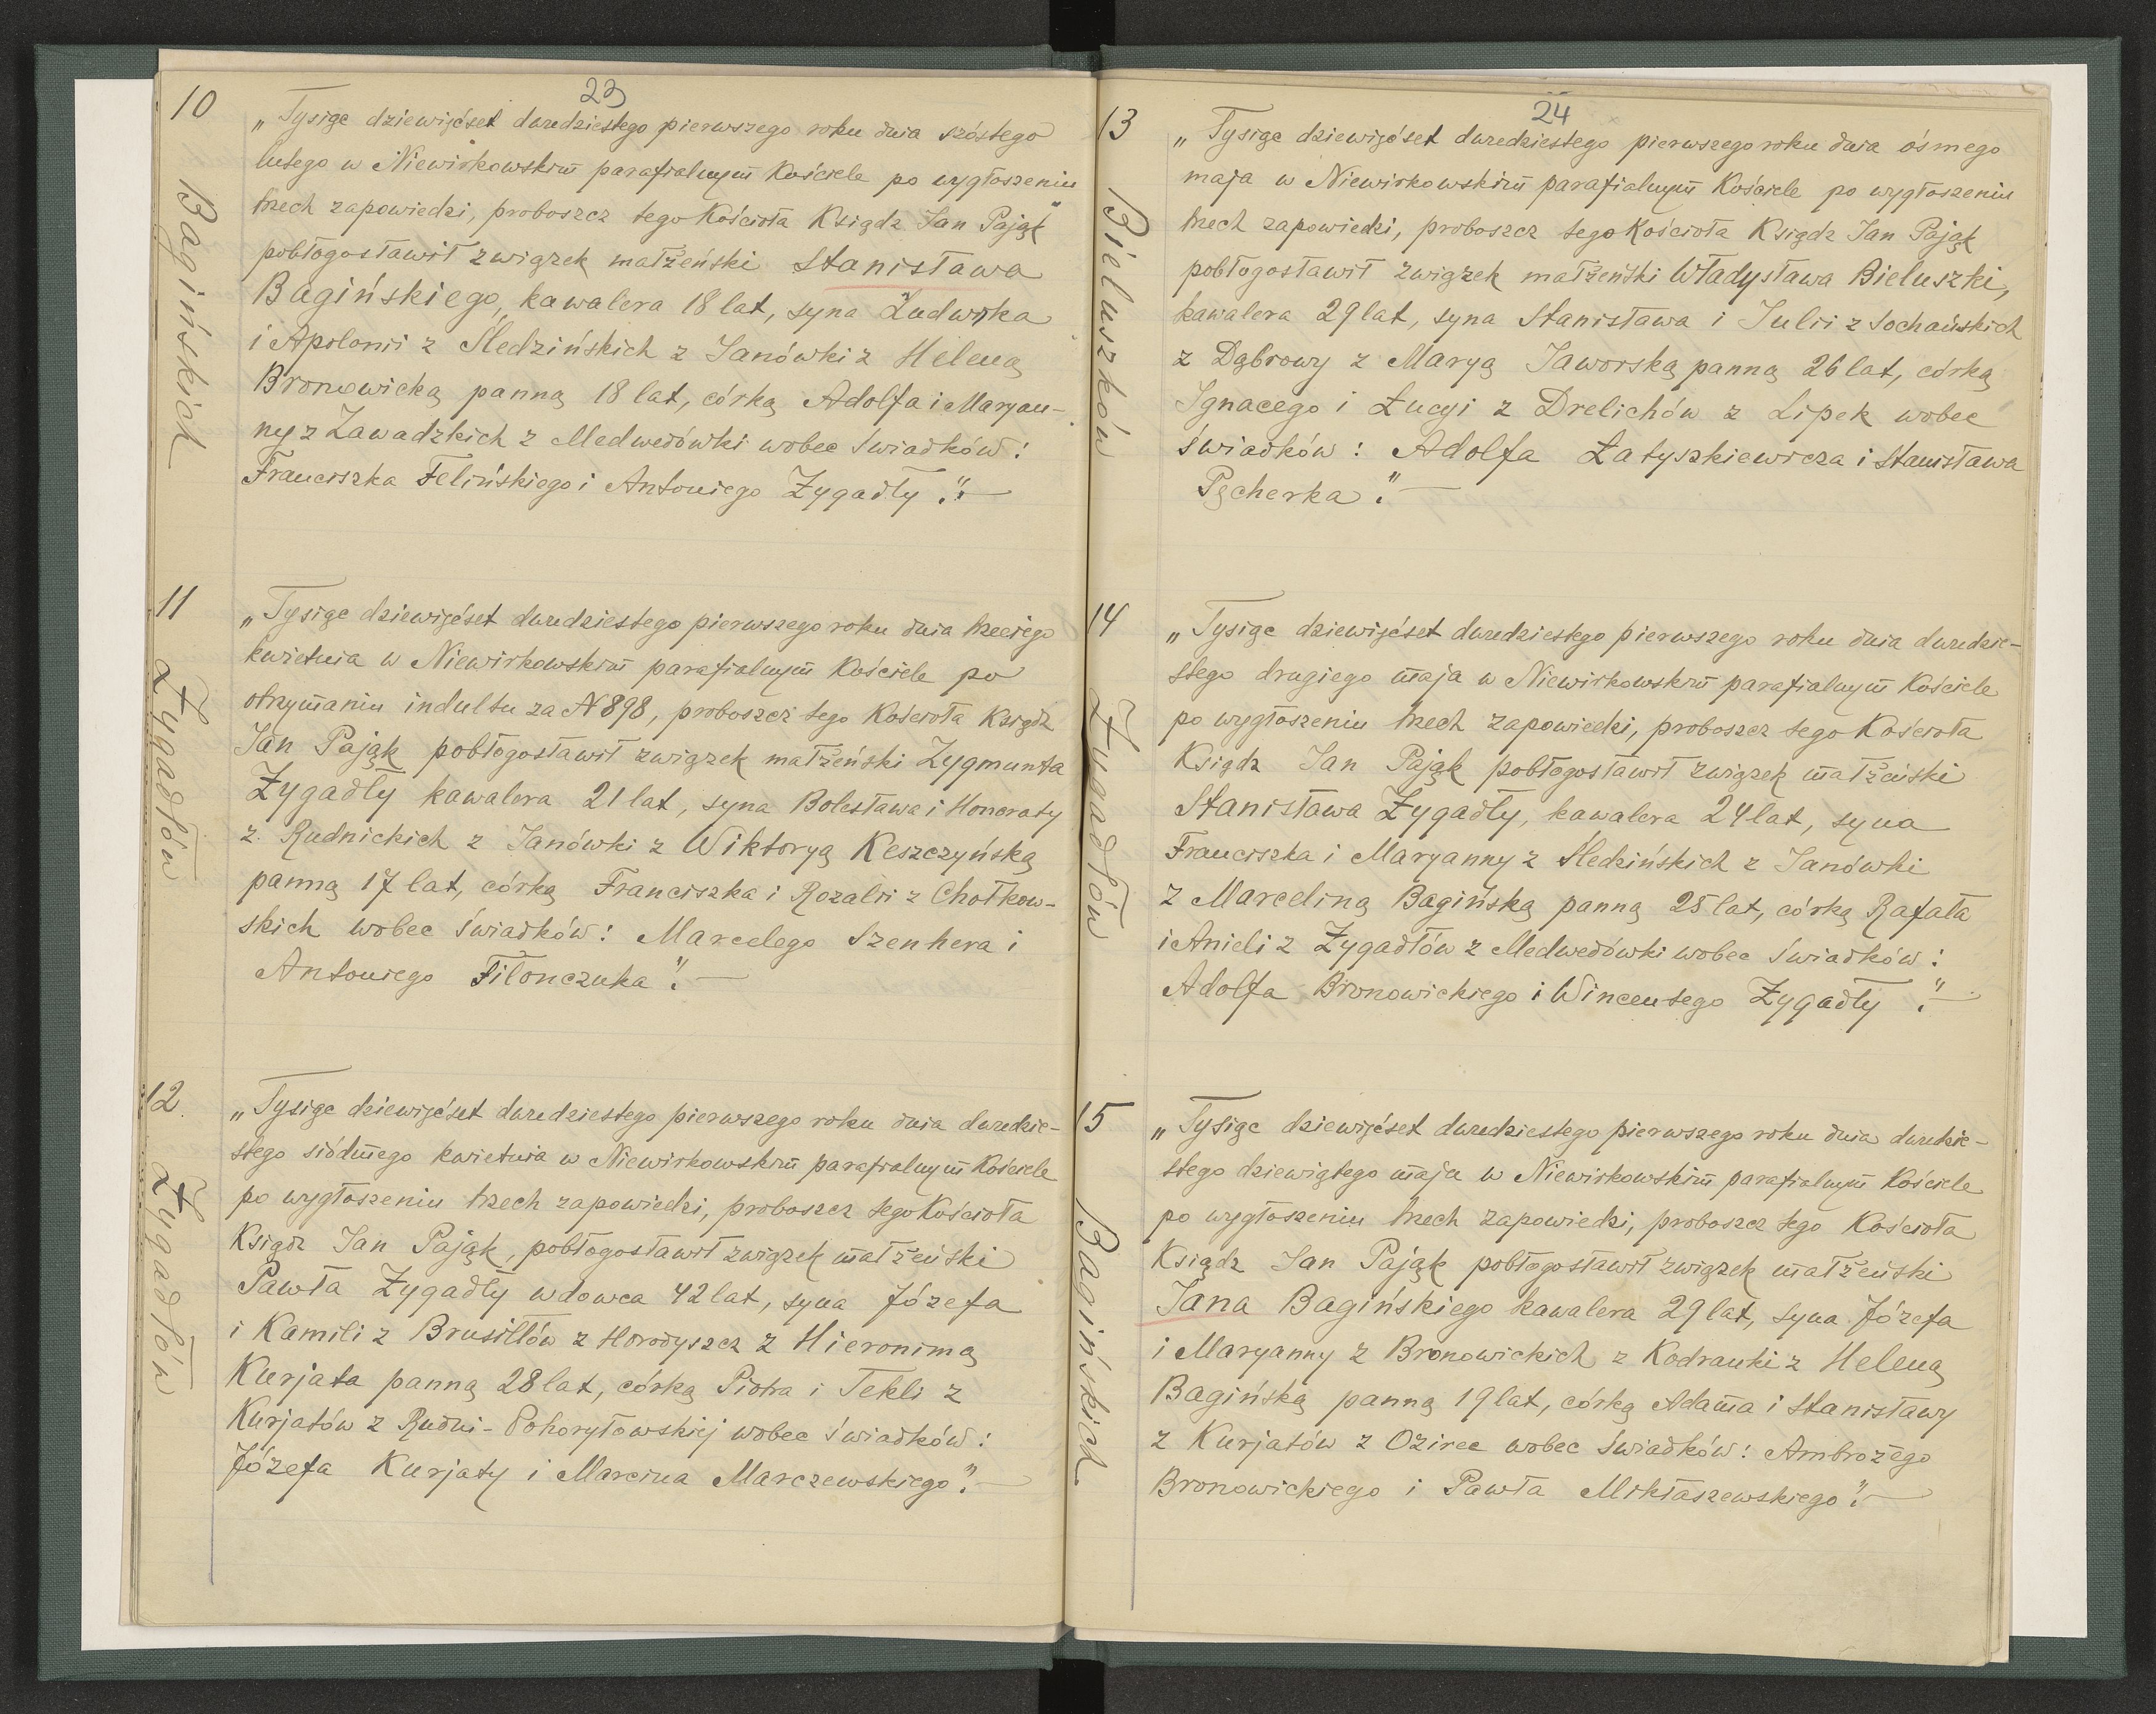 23
10
Bagińskich
„Tysiąc dziewięćset dwudziestego pierwszego roku dnia szóstego
lutego w Niewirkowskim parafialnym Kościele po wygłoszeniu
trzech zapowiedzi, proboszcz tego Kościoła Ksiądz Jan Pająk
pobłogosławił związek małżeński Stanisława
Bagińskiego, kawalera 18 lat, syna Ludwika
i Apolonii z Śledzińskich z Janówki z Heleną
Bronowicką panną 18 lat, córką Adolfa i Maryan-
ny z Zawadzkich z Medwedówki wobec świadków:
Franciszka Felińskiego i Antoniego Zygadły."—
11
Zygadłów
„Tysiąc dziewięćset dwudziestego pierwszego roku dnia trzeciego
kwietnia w Niewirkowskim parafialnym Kościele po
otrzymaniu indultu za N 898, proboszcz tego Kościoła Ksiądz
Jan Pająk pobłogosławił związek małżeński Zygmunta
Zygadły kawalera 21 lat, syna Bolesława i Honoraty
z Rudnickich z Janówki z Wiktoryą Keszczyńską
panną 17 lat, córką Franciszka i Rozalii z Chołkow-
skich wobec świadków: Marcelego Szenhera i
Antoniego Filonczuka".—
12
Zygadłów
„Tysiąc dziewięćset dwudziestego pierwszego roku dnia dwudzie-
stego siódmego kwietnia w Niewirkowskim parafialnym Kościele
po wygłoszeniu trzech zapowiedzi, proboszcz tego Kościoła
Ksiądz Jan Pająk, pobłogosławił związek małżeński
Pawła Zygadły wdowca 42 lat, syna Józefa
i Kamili z Brusiłłów z Horodyszcz z Hieronimą
Kurjata panną 28 lat, córką Piotra i Tekli z
Kurjatów z Rudni-Pohoryłowskiej wobec świadków:
Józefa Kurjaty i Marcina Marczewskiego".—
24
13
Bieluszków
„Tysiąc dziewięćset dwudziestego pierwszego roku dnia ósmego
maja w Niewirkowskim parafialnym Kościele po wygłoszeniu
trzech zapowiedzi, proboszcz tego Kościoła Ksiądz Jan Pająk
pobłogosławił związek małżeński Władysława Bieluszki,
kawalera 29 lat, syna Stanisława i Julii z Sochańskich
z Dąbrowy z Maryą Jaworską panną 26 lat, córką
Ignacego i Łucyi z Drelichów z Lipek wobec
świadków: Adolfa Łatyszkiewicza i Stanisława
Pęcherka".—
14
Zygadłów
„Tysiąc dziewięćset dwudziestego pierwszego roku dnia dwudzie-
stego drugiego maja w Niewirkowskim parafialnym Kościele
po wygłoszeniu trzech zapowiedzi, proboszcz tego Kościoła
Ksiądz Jan Pająk pobłogosławił związek małżeński
Stanisława Zygadły, kawalera 24 lat, syna
Franciszka i Maryanny z Śledzińskich z Janówki
z Marceliną Bagińską panną 25 lat, córką Rafała
i Anieli z Zygadłów z Medwedówki wobec świadków:
Adolfa Bronowickiego i Wincentego Zygadły".—
15
Bagińskich
„Tysiąc dziewięćset dwudziestego pierwszego roku dnia dwudzie-
stego dziewiątego maja w Niewirkowskim parafialnym Kościele
po wygłoszeniu trzech zapowiedzi, proboszcz tego Kościoła
Ksiądz Jan Pająk pobłogosławił związek małżeński
Jana Bagińskiego kawalera 29 lat, syna Józefa
i Maryanny z Bronowickich z Kodranki z Heleną
Bagińską panną 19 lat, córką Adama i Stanisławy
z Kurjatów z Ozirec wobec świadków: Ambrożego
Bronowickiego i Pawła Mikłaszewskiego".—